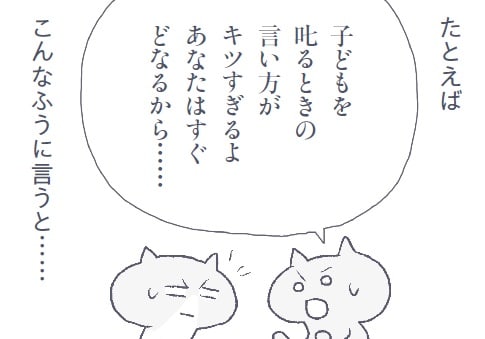 たとえば
子どもを
叱るときの
言い方が
キツすぎるよ
あなたはすぐ
どなるから……
こんなふうに言うと……